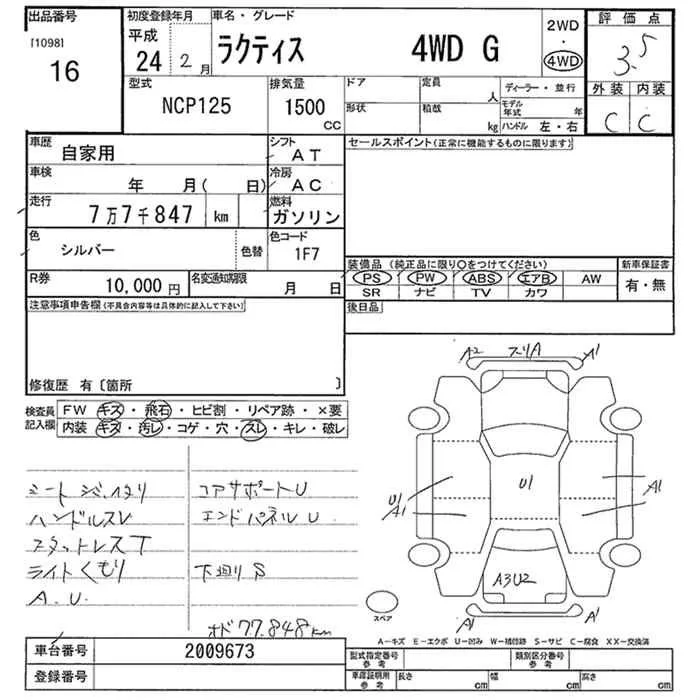 出品番号
[1098]
16
初度登録年月
平成
24年 2月
車名・グレード
ラクティス 4WD G
2WD
・
4WD
評価点
3.5
外装 内装
C C
型式
NCP125
排気量
1500
CC
ドア
形状
定員
人
積載
kg
ディーラー・並行
モデル年式 年
ハンドル 左・右
車歴
自家用
シフト
AT
車検
年 月( 日)
冷房
AC
走行
7万7千847 km
燃料
ガソリン
色
シルバー
色替
色コード
1F7
R券
10,000 円
名変通知期限
月 日
セールスポイント(正常に機能するものに限ります)
装備品(純正品に限り○をつけてください)
PS PW ABS エアB AW
SR ナビ TV カワ
新車保証書
有・無
後日品
注意事項申告欄(不具合内容等は具体的に記入して下さい)
修復歴 有〔箇所 〕
検査員記入欄
FW キズ・飛石・ヒビ割・リペア跡・×要
内装 キズ・汚レ・コゲ・穴・スレ・キレ・破レ
シート
ハンドルスレ
スタットレスT
ライトくもり
A.U.
コアサポートU
エンドパネルU
下廻りS
オド77.848km
A2 スリA A1
U1
U1
A1
A1
A3U2
A1 A1
スペア
A-キズ E-エクボ U-凹み W-補修跡 S-サビ C-腐食 XX-交換済
車台番号
2009673
登録番号
型式指定番号
参考
類別区分番号
参考
車庫証明用
参考
長さ cm
幅 cm
高さ cm